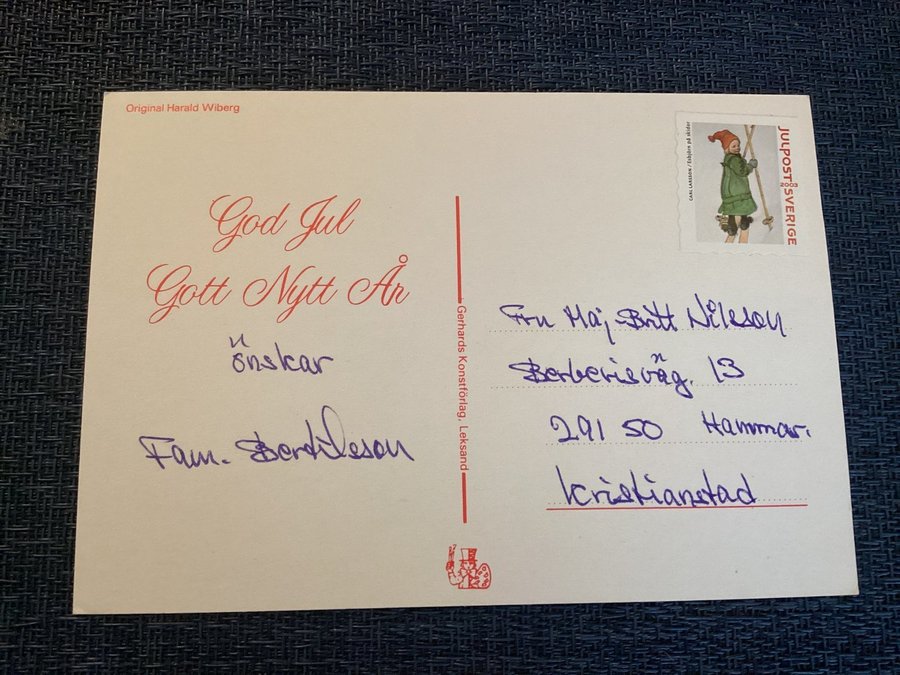 Original Harald Wiberg
God Jul
Gott Nytt År
önskar
Fam. Bertilsson
Gerhards Konstförlag, Leksand
CARL LARSSON / Esbjörn på skidor
JULPOST 2008 SVERIGE
Fru Maj-Britt Nilsson
Berberisväg. 13
291 50 Hammar.
Kristianstad